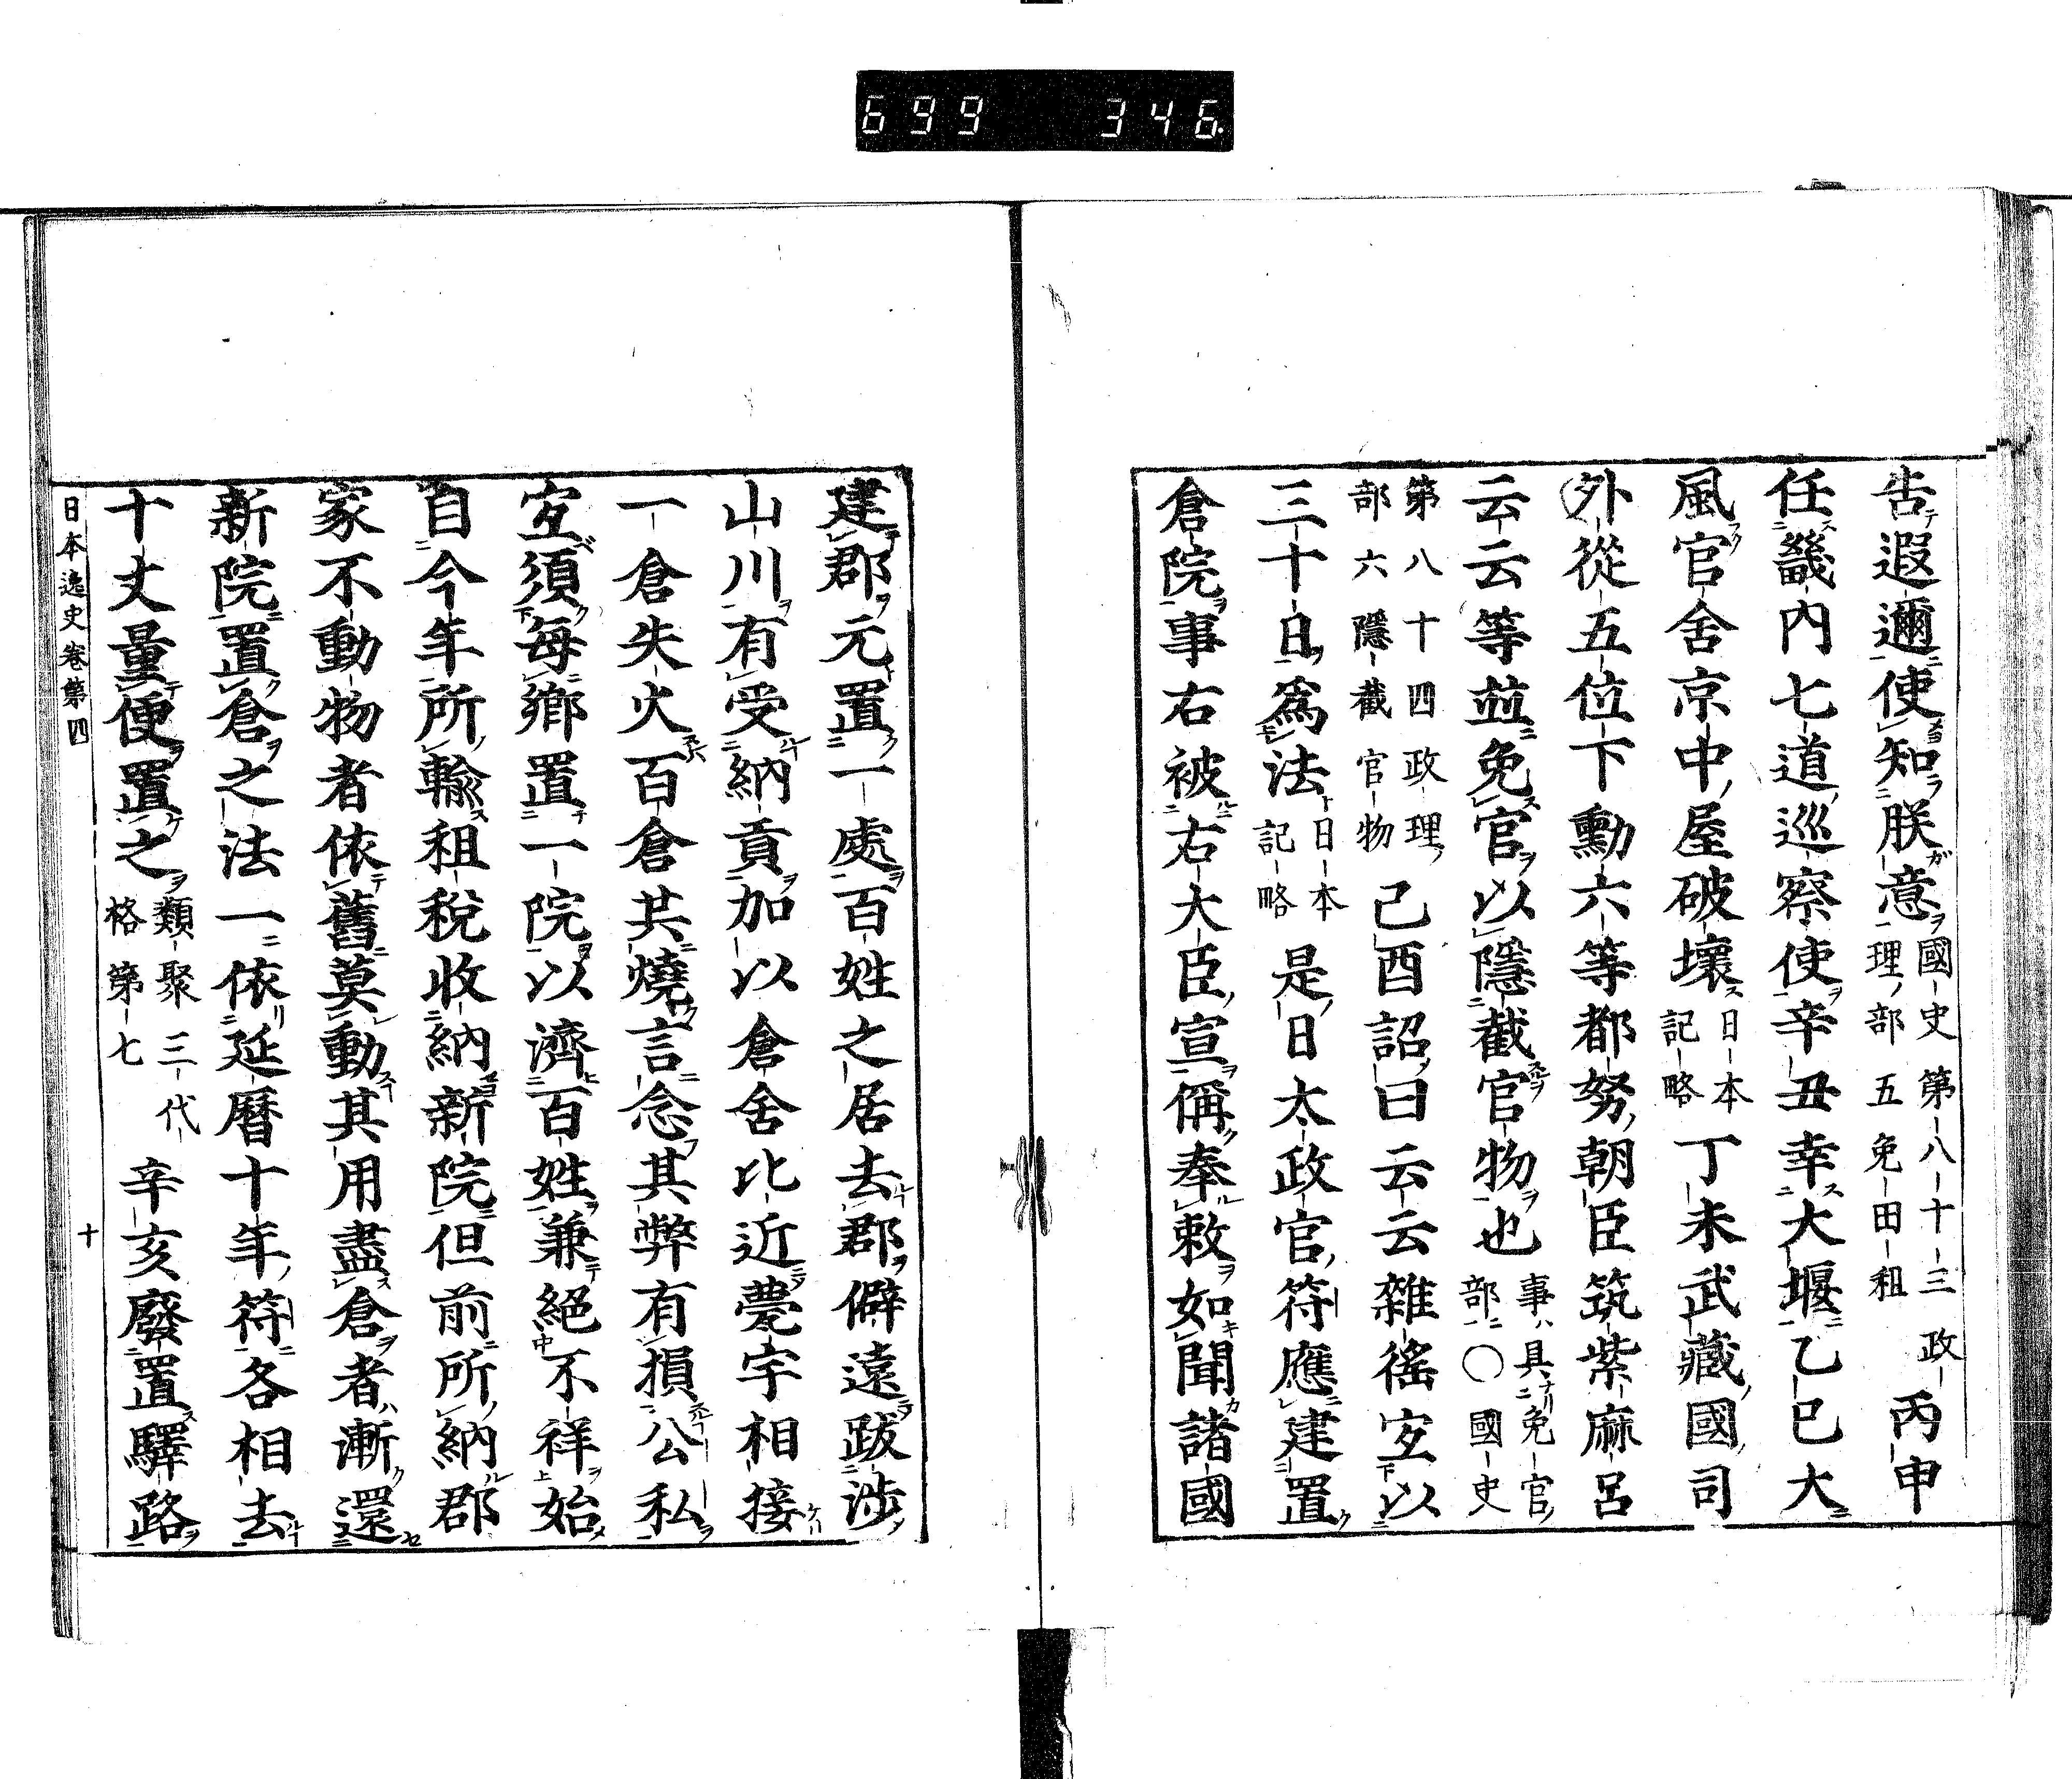 699 346
告遐邇使知朕意國史第八十三政理部五免田租丙申
任畿内七道巡察使辛丑幸大堰乙巳大
風官舍京中屋破壞日本記略丁未武藏國司
外從五位下勳六等都努朝臣筑紫麻呂
云云等並免官以隱截官物也事具免官部○國史
第八十四政理部六隱截官物己酉詔曰云云雜徭宜以
三十日爲法日本記略是日太政官符應建置
倉院事右被右大臣宣偁奉敕如聞諸國
建郡元置一處百姓之居去郡僻遠跋涉
山川有受納貢加以倉舍比近甍宇相接
一倉失火百倉共燒言念其弊有損公私
宜須每鄉置一院以濟百姓兼絕不祥始
自今年所輸租稅收納新院但前所納郡
家不動物者依舊莫動其用盡倉者漸還
新院置倉之法一依延曆十年符各相去
十丈量便置之類聚三代格第七辛亥廢置驛路
日本逸史卷第四 十